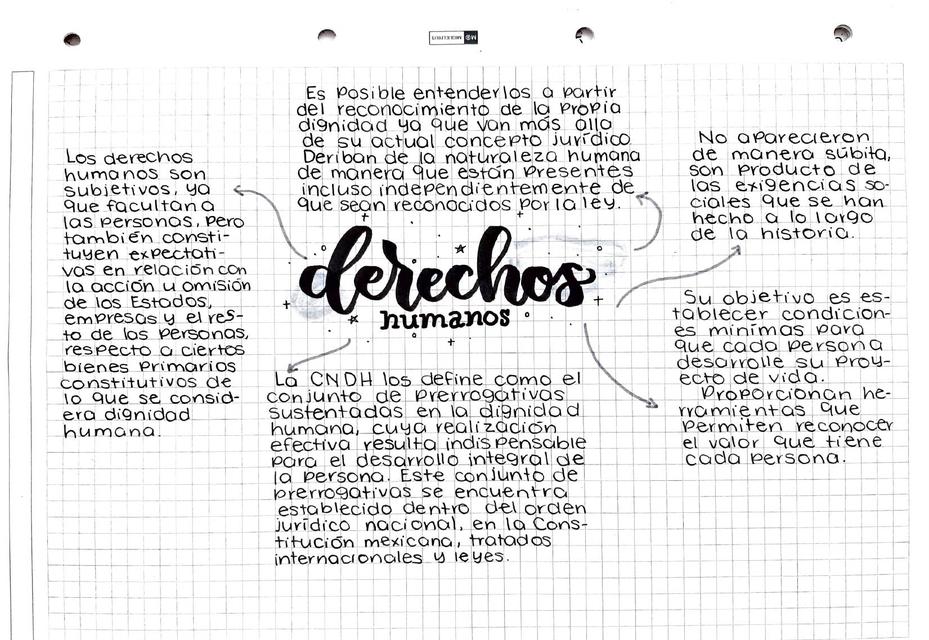 MIQUELRIUS MR
Es posible entenderlos a partir
del reconocimiento de la propia
dignidad ya que van más allá
de su actual concepto jurídico.
Deriban de la naturaleza humana
de manera que están presentes
incluso independientemente de
que sean reconocidos por la ley.
Los derechos
humanos son
subjetivos, ya
que facultan a
las personas, pero
también consti-
tuyen expectati-
vas en relación con
la acción u omisión
de los Estados,
empresas y el res-
to de las personas,
respecto a ciertos
bienes primarios
constitutivos de
lo que se consid-
era dignidad
humana.
No aparecieron
de manera súbita,
son producto de
las exigencias so-
ciales que se han
hecho a lo largo
de la historia.
derechos
humanos
Su objetivo es es-
tablecer condicion-
es mínimas para
que cada persona
desarrolle su proy-
ecto de vida.
Proporcionan he-
rramientas que
permiten reconocer
el valor que tiene
cada persona.
La CNDH los define como el
conjunto de prerrogativas
sustentadas en la dignidad
humana, cuya realización
efectiva resulta indispensable
para el desarrollo integral de
la persona. Este conjunto de
prerrogativas se encuentra
establecido dentro del orden
jurídico nacional, en la Cons-
titución mexicana, tratados
internacionales y leyes.